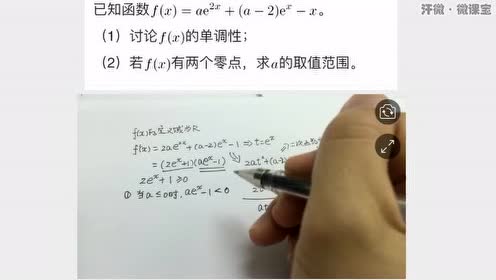 汗微·微课室
已知函数f(x) = ae^{2x} + (a − 2)e^x − x。
（1）讨论f(x)的单调性；
（2）若f(x)有两个零点，求a的取值范围。
f(x)的定义域为R
f'(x) = 2ae^{2x} + (a-2)e^x - 1 ⇒ t = e^x
= (2e^x+1)(ae^x-1) 2at²+(a-2)
2e^x + 1 ≥ 0
① 当 a ≤ 0时, ae^x - 1 < 0